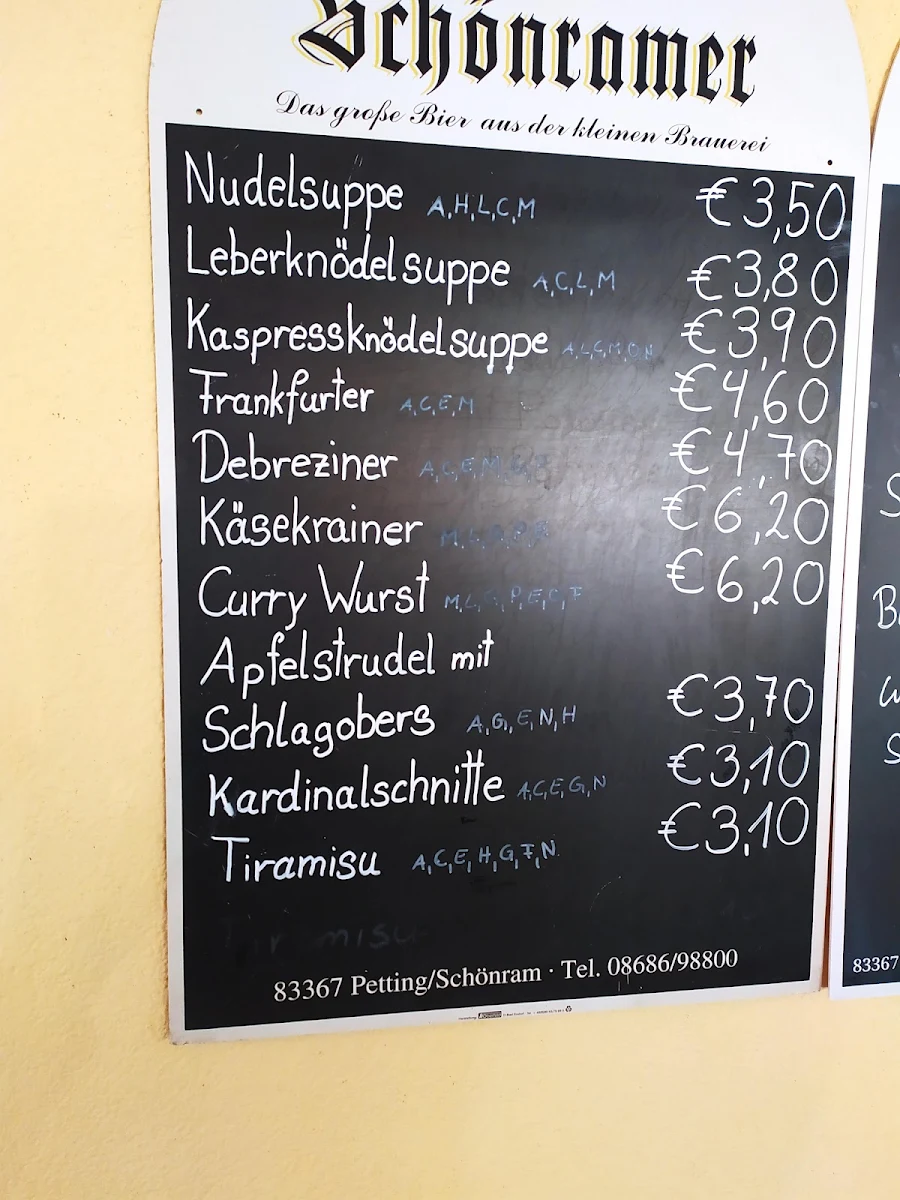 Schönramer
Das große Bier aus der kleinen Brauerei
Nudelsuppe A,H,L,C,M €3,50
Leberknödelsuppe A,C,L,M €3,80
Kaspressknödelsuppe €3,90
Frankfurter A,C,E,M €4,60
Debreziner €4,70
Käsekrainer €6,20
Curry Wurst €6,20
Apfelstrudel mit
Schlagobers A,G,E,N,H €3,70
Kardinalschnitte A,C,E,G,N €3,10
Tiramisu A,C,E,H,G,F,N €3,10
83367 Petting/Schönram · Tel. 08686/98800
83367